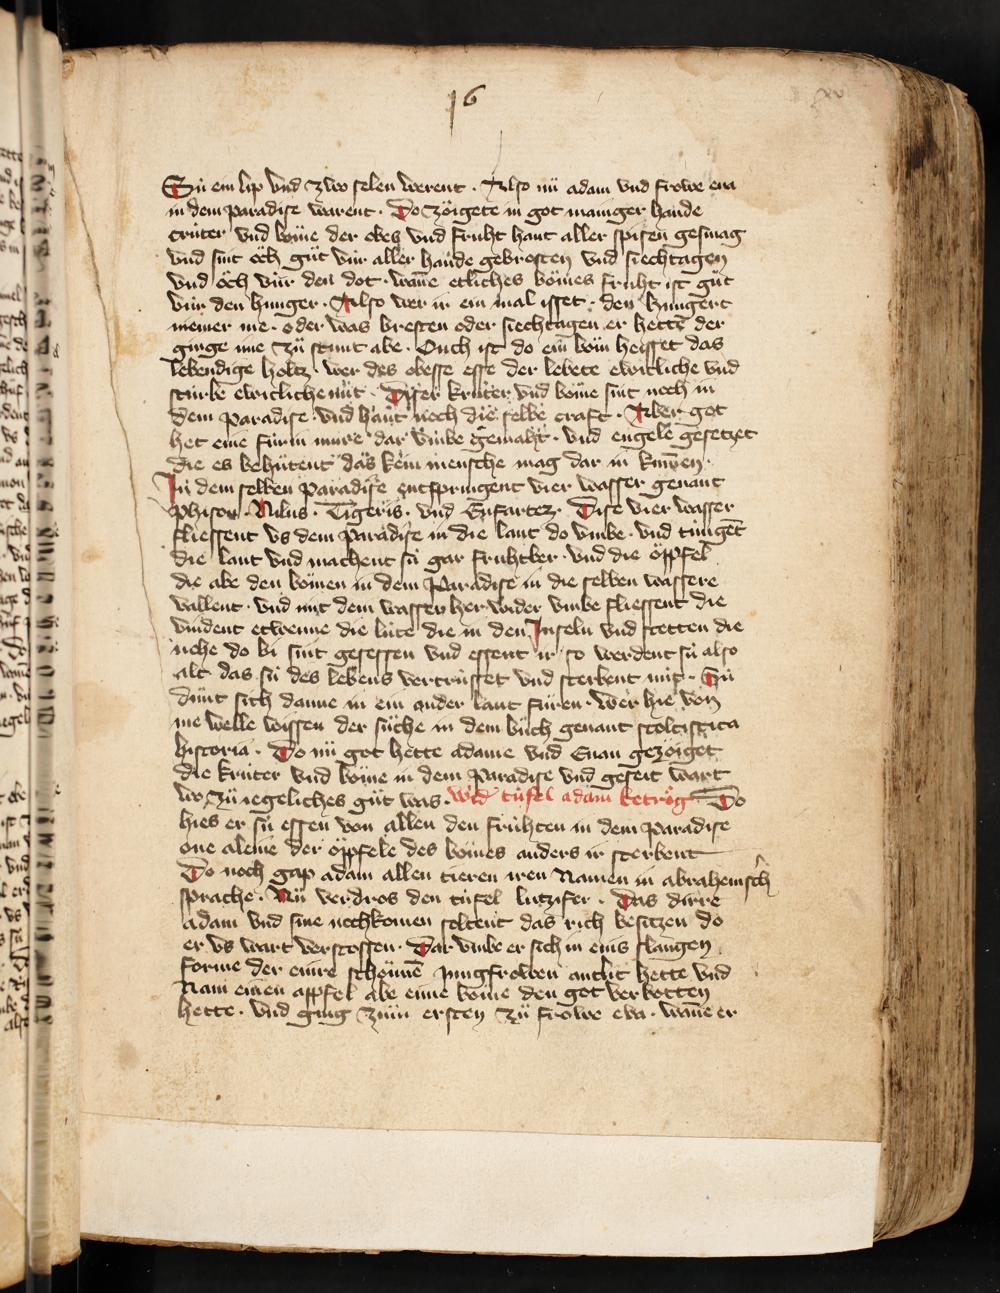 16
xv
Sü ein lip vnd zwo selen werent · Also nü adam vnd frowe eva
in dem paradise warent · Do zöigete in got maniger hande
crüter vnd böme der obes vnd fruht hant aller spisen gesmag
vnd sint öch güt vür aller hande gebresten vnd siechtagen
vnd öch vür den dot · wañe etliches bömes fruht ist güt
vür den hunger · Also wer ir ein mal isset · den hungert
niemer me · oder was bresten oder siechtagen er hette der
ginge ime zü stunt abe · Ouch ist do ein böm heisset das
lebendige holtz · wer des obesse esse der lebete ewicliche vnd
stürbe ewicliche nüt · Diser krüter vnd böme sint noch in
dem paradise vnd hant noch die selbe craft · Aber got
het eine fürin mure dar vmbe gemaht · vnd engele gesetzet
die es behütent das kein mensche mag dar in kummen ·
In dem selben paradise entspringent vier wasser genant
phison · Nilus · Tigeris · vnd Eufartez · Dise vier wasser
fliessent vs dem paradise in die lant do vmbe · vnd tünget
die lant vnd machent sü gar fruhtber · vnd die öppfel
die abe den bömen in dem paradise in die selben wassere
vallent · vnd mit dem wasser her wider vmbe fliessent die
vindent etwenne die lüte die in den Inseln vnd stetten die
nohe do bi sint gesessen vnd essent ir so werdent sü also
alt das sü des lebens vertrüsset vnd sterbent nüt · Sü
dünt sich danne in ein ander lant füren · wer hie von
me welle wissen der süche in dem büch genant scolastica
historia · Do nü got hette adame vnd Euan gezöiget
die krüter vnd böme in dem paradise vnd geseit wart
wo zü iegeliches güt was · wie d' tüfel adam betrög Do
hies er sü essen von allen den frühten in dem paradise
one aleine der öppfele des bömes anders ir sterbent
Do noch gap adam allen tieren iren Namen in abrahemsch
sprache · Nü verdros den tüfel lutzifer · Das dirre
adam vnd sine nochkomen soltent das rich besitzen do
er vs wart verstossen · Dar vmbe er sich in eins slangen
forme der einre schönnen jungfrowen antlit hette vnd
Nam einen appfel abe eime böme den got verbotten
hette · vnd ging zum ersten zü frowe eva · wañe er